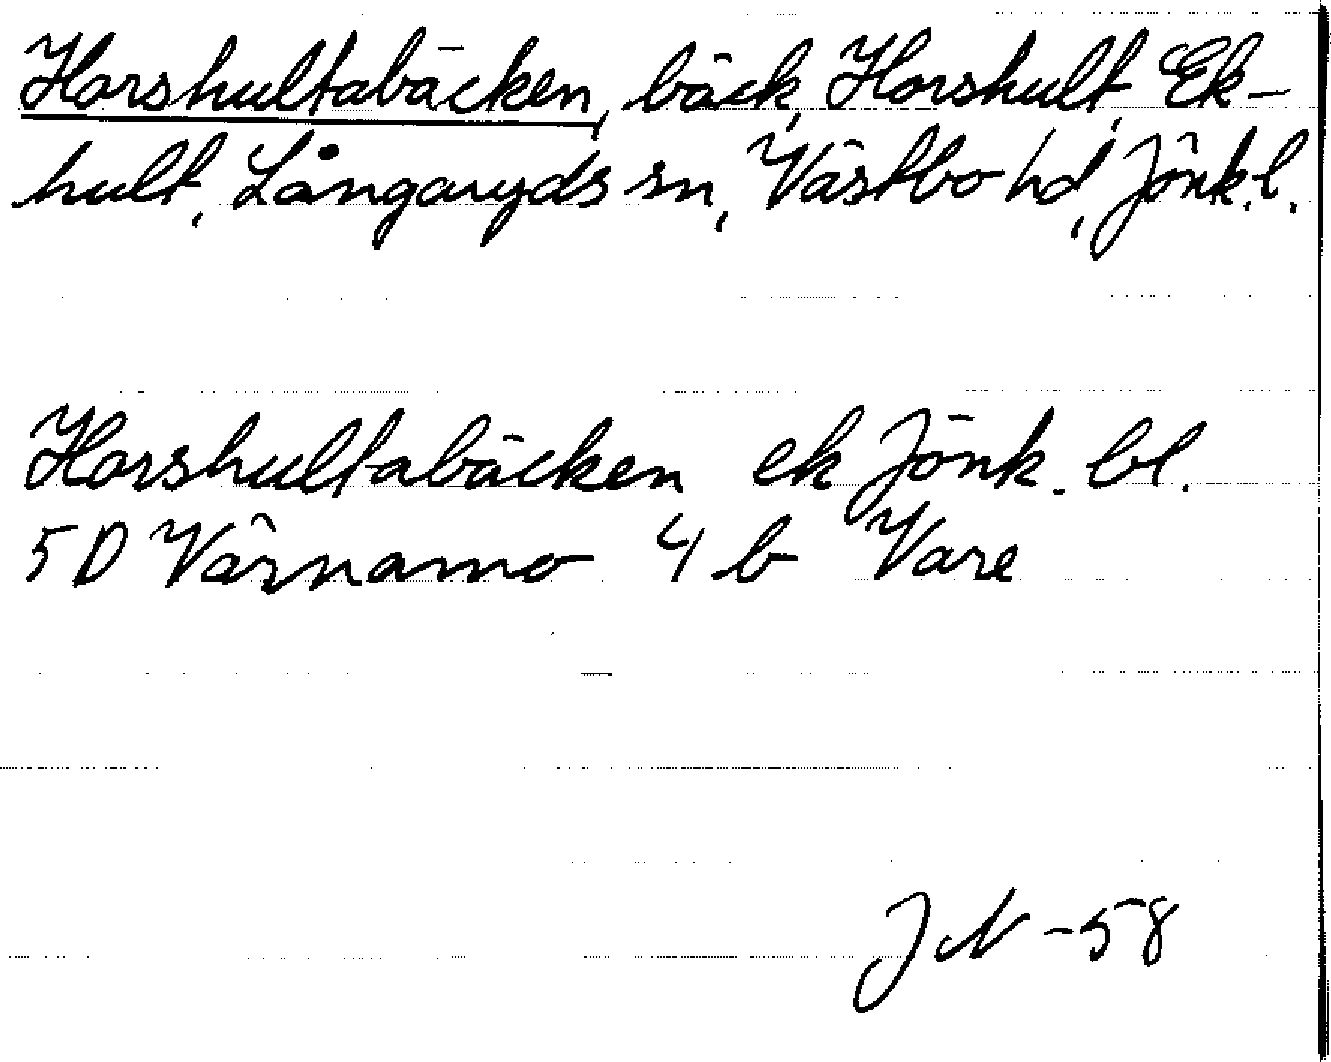 Horshultabäcken, bäck, Horshult, Ek-
hult, Långaryds sn, Västbo hd, Jönk.l.
Horshultabäcken ek Jönk. bl.
5D Värnamo 4 b Vare
JN -58